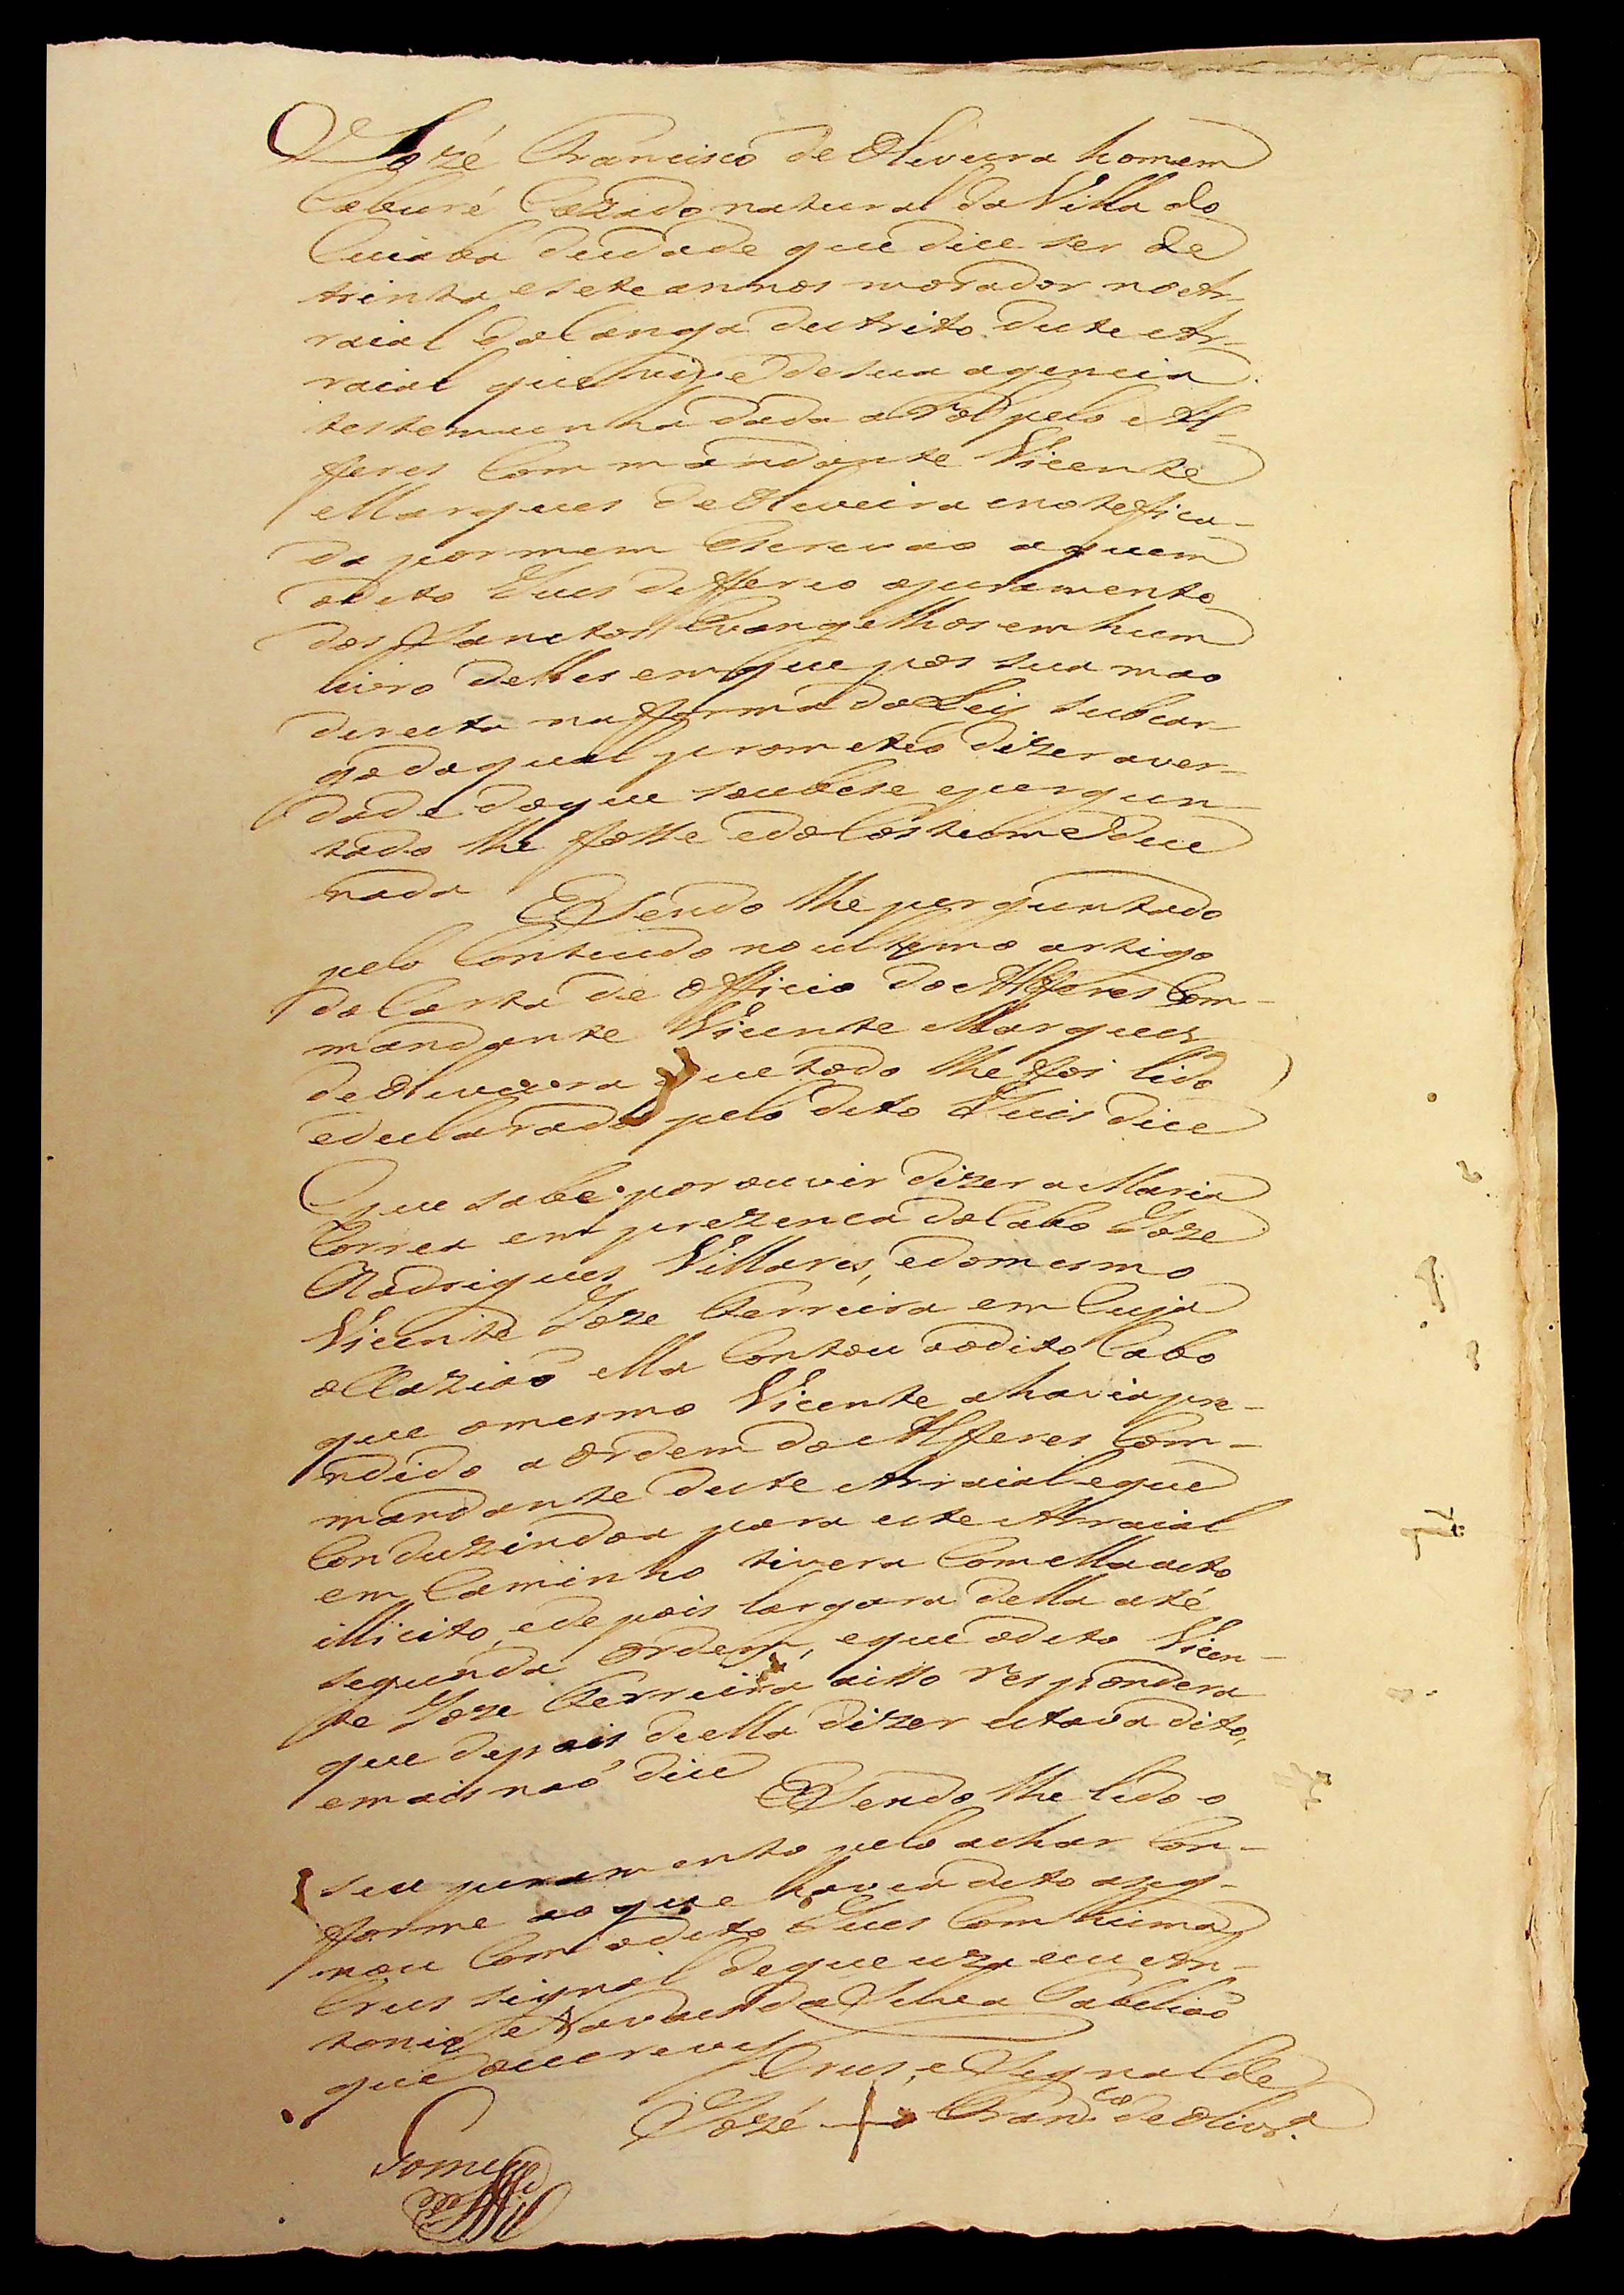 Jozé Francisco de Oliveira homem
Caburé Cazado natural da Villa do
Cuiabá deidade que dice ser de
trinta e sete annos morador no Ar-
raial do Langa destrito deste Ar-
raial que vive de sua agencia
testemunha dada a rol pelo Al-
feres Commandante Vicente
Marques de Oliveira e noteffica-
da por mem Escrivao a quem
o dito Juis defferio o juramento
dos Sanctos Evangelhos em hum
livro delles em que pos sua mao
direita na fforma da Ley subcar-
go do qual prometeo dizer a ver-
dade do que soubese e pergun-
tado lhe fosse e do Costume dice
nada E Sendo lhe perguntado
pelo Contiudo no ultemo artigo
da Carta de Officio do Alfferes Com-
mandante Vicente Marques
de Oliveira que todo lhe ffoi lido
e declarado pelo dito Juis dice
Que sabe por ouvir dizer a Maria
Correa em prezenca do Cabo Joze
Rodrigues Villares, e do mesmo
Vicente Joze Ferreira em Cuja
occaziaõ ella Contou ao dito Cabo
que o mesmo Vicente a havia pre-
ndido a Ordem do Alfferes Com-
mandante deste Arraial e que
Conduzindoa para este Arraial
em Caminho tivera Com ella acto
illicito, e depois largara della até
segunda Ordem, e que o dito Vicen-
te Joze Ferreira a isso respondera
que depois de ella dizer estava dito,
e mais naõ dice E Sendo lhe lido o
seu juramento pelo achar Con-
forme ao que havia dito asig-
nou Com o dito Juis Com huma
Crus signal de que uza eu An-
tonio da Silva Tabeliaõ
que o escrevy
Crus, e Signal de
Jozé + Fran.co de Olivr.a
Gomes